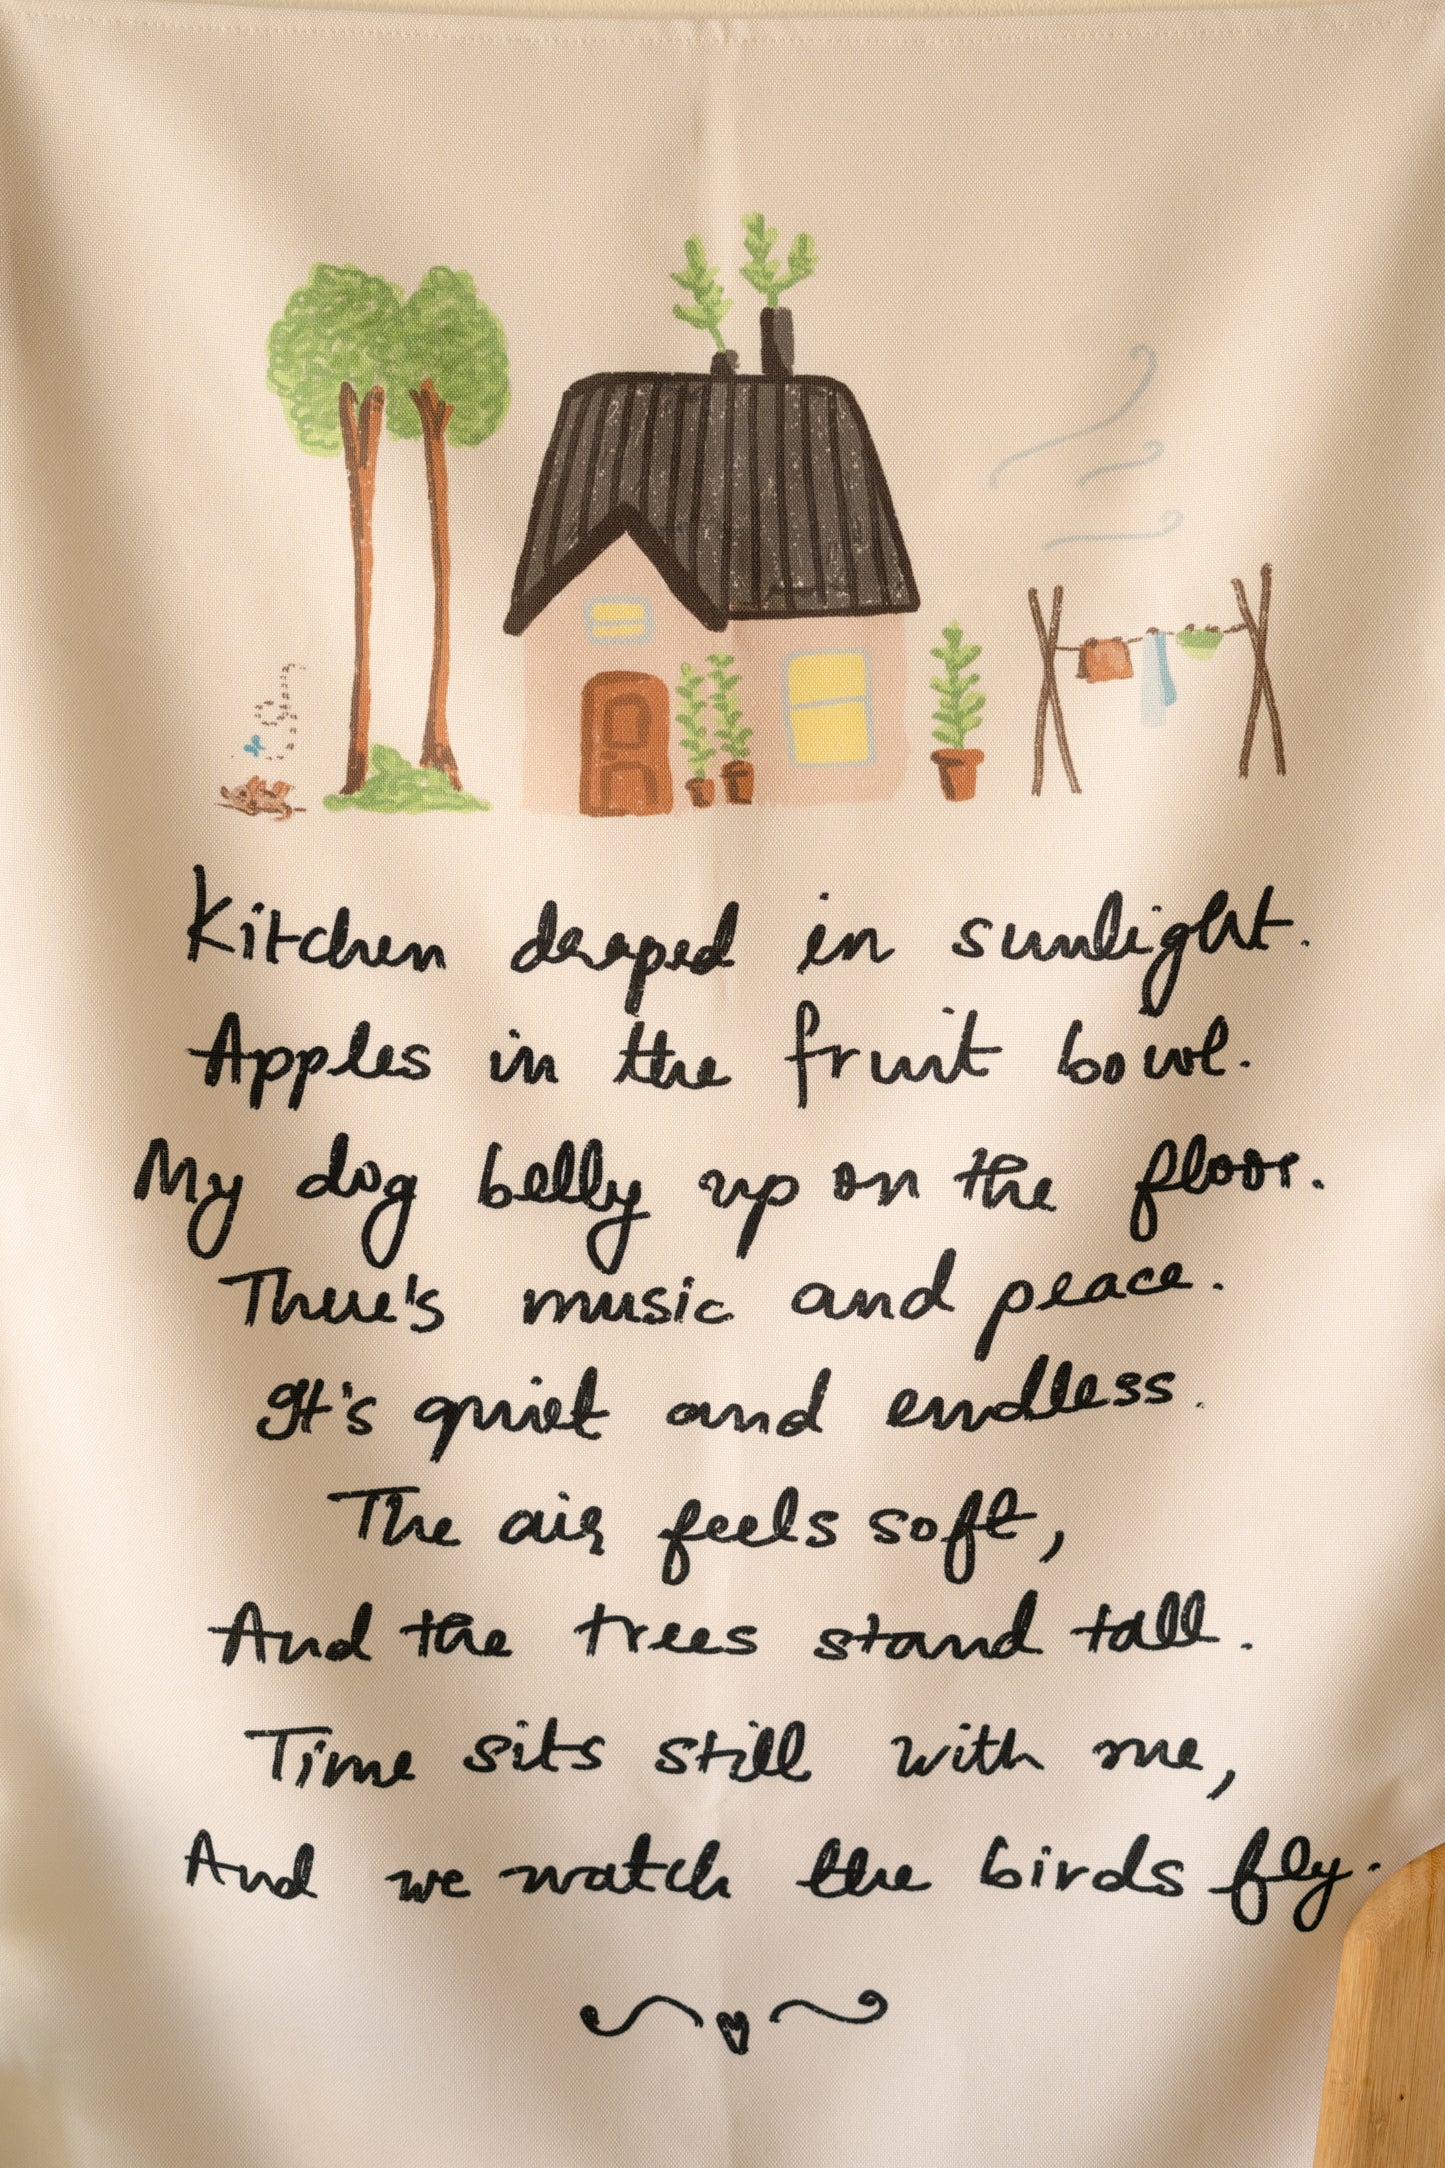 Kitchen draped in sunlight.
Apples in the fruit bowl.
My dog belly up on the floor.
There's music and peace.
It's quiet and endless.
The air feels soft,
And the trees stand tall.
Time sits still with me,
And we watch the birds fly.